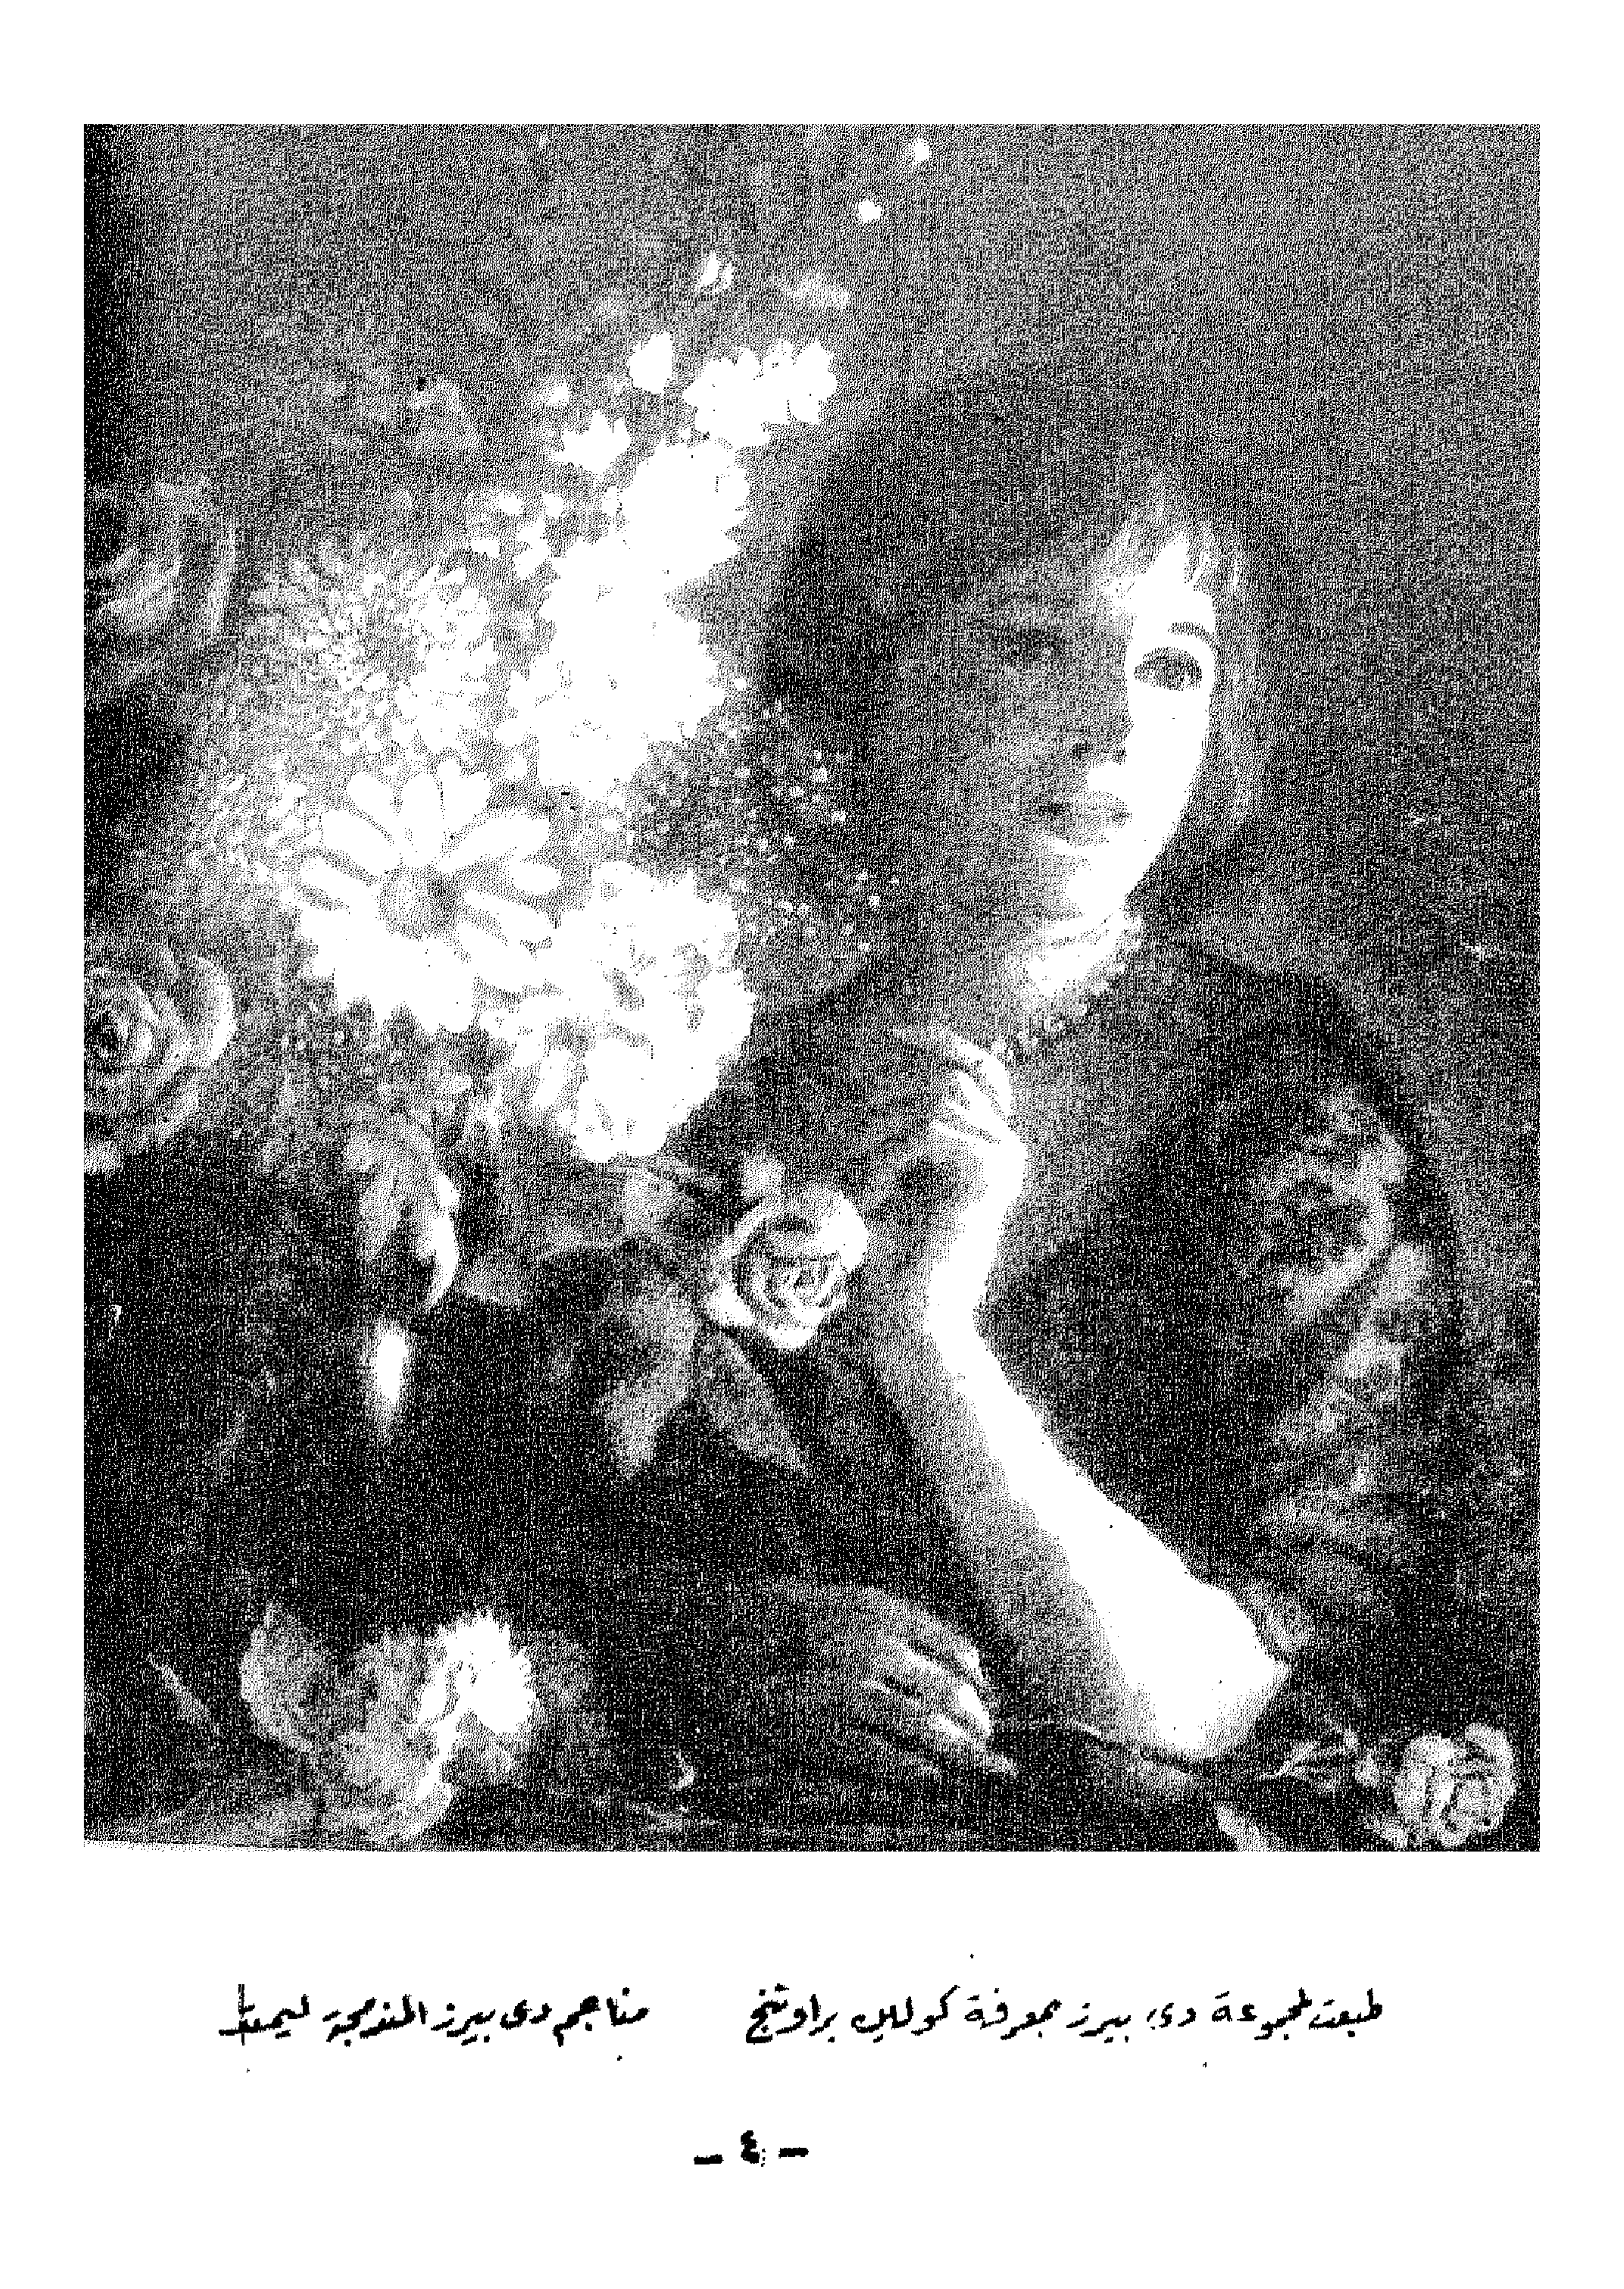 طبعت لمجموعة دى بيرز بمعرفة كوللين براوننج مناجم دى بيرز المندمجة ليمتد
- ٤ -